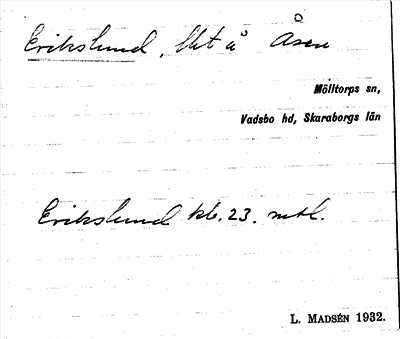 Erikslund, lht å Åsen
Mölltorps sn,
Vadsbo hd, Skaraborgs län
Erikslund kb. 23. mtl.
L. MADSÉN 1932.